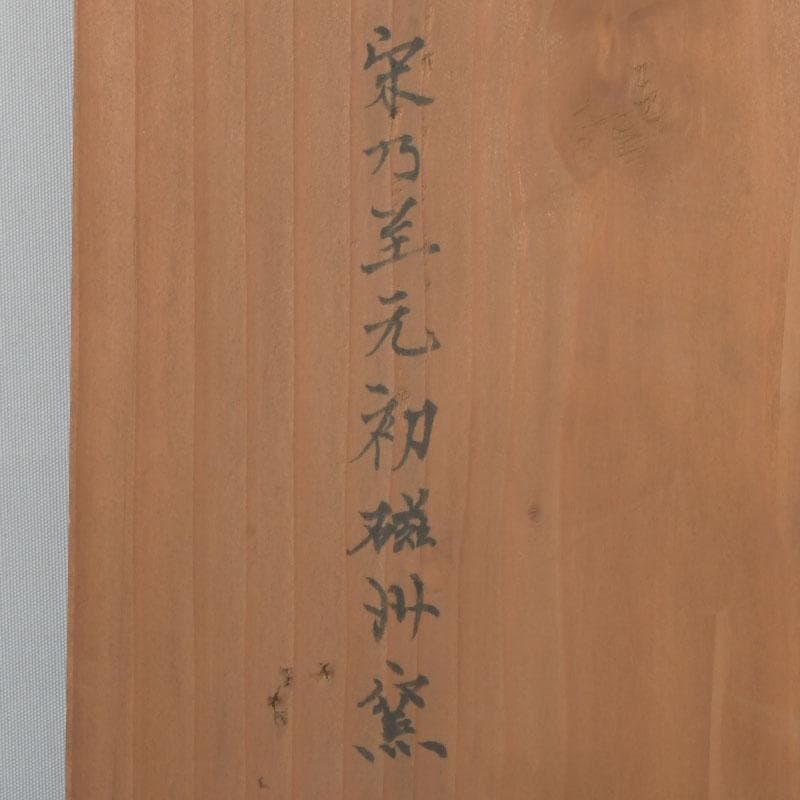 宋乃至元初磁州窯